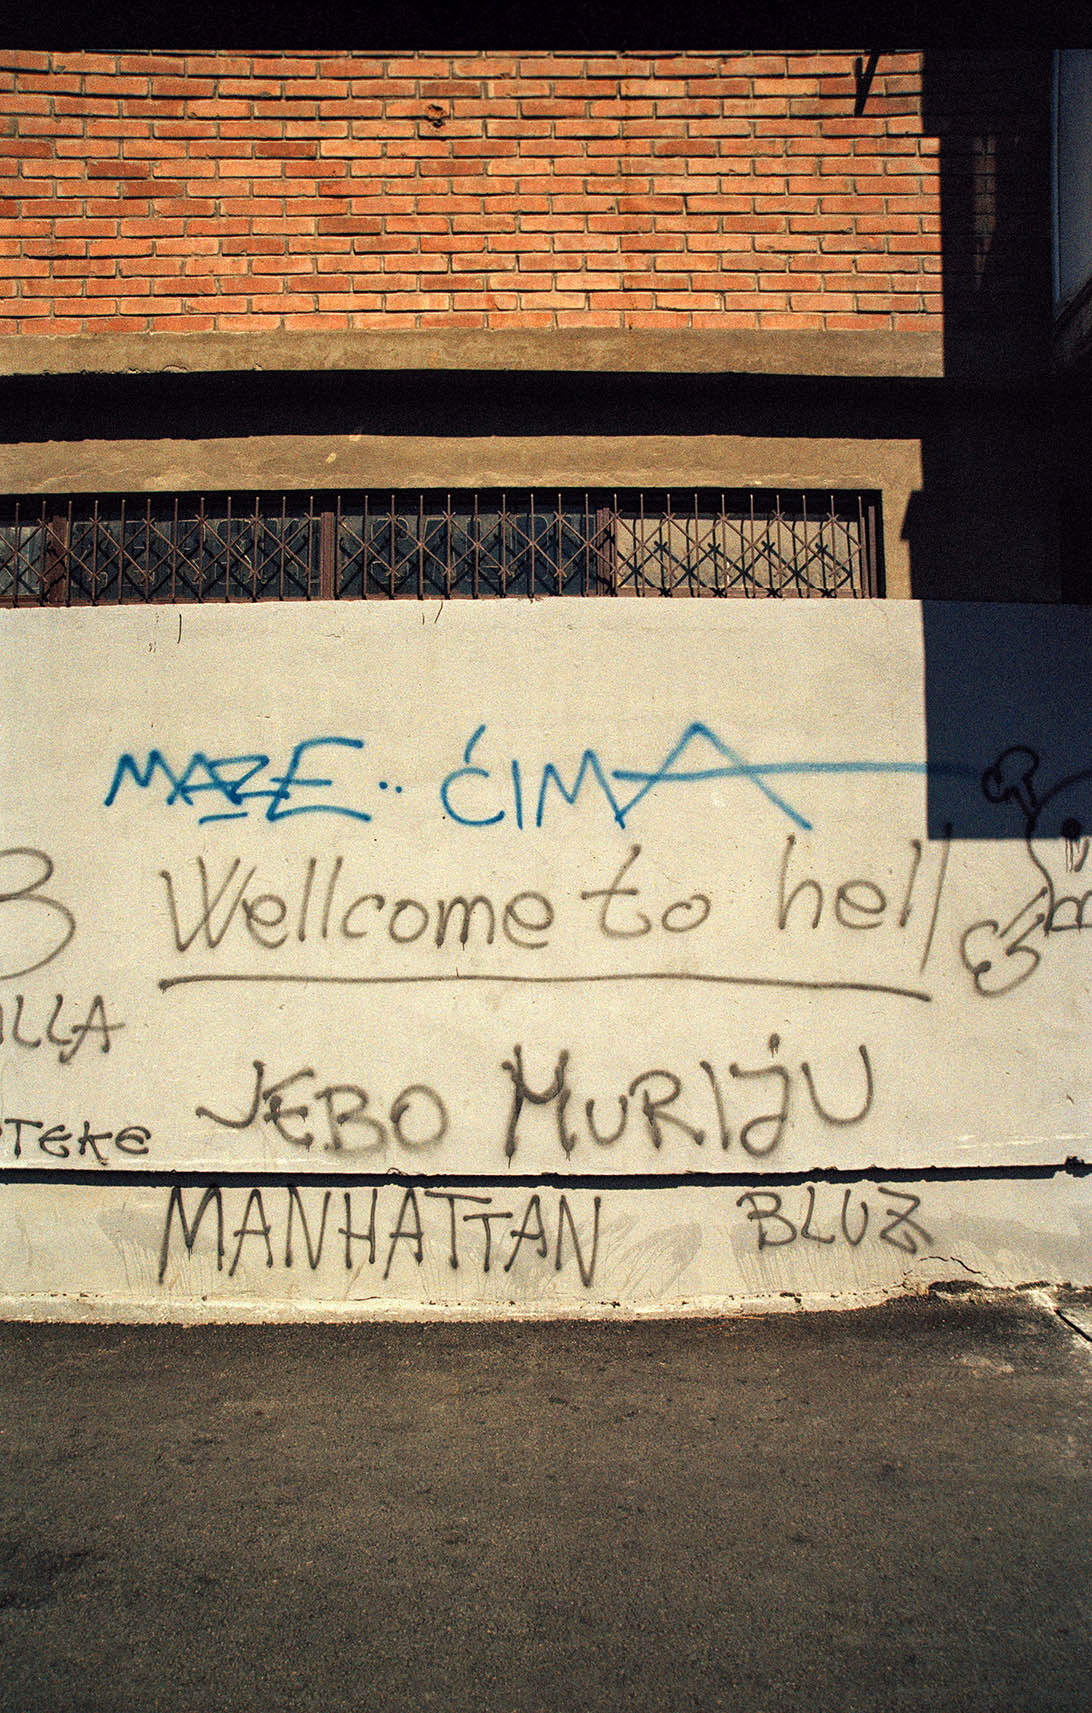 MAZE.. ĆIMA
Wellcome to hell
JEBO MURIJU
MANHATTAN BLUZ